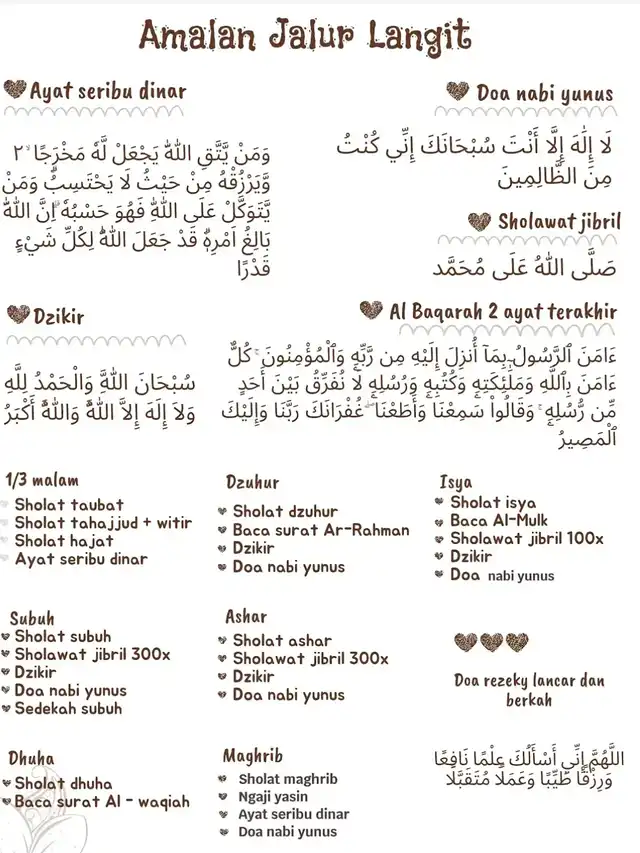 Amalan Jalur Langit
Ayat seribu dinar
وَمَنْ يَّتَّقِ اللّٰهَ يَجْعَلْ لَّهٗ مَخْرَجًا ۙ ٢
وَّيَرْزُقْهُ مِنْ حَيْثُ لَا يَحْتَسِبُۗ وَمَنْ
يَّتَوَكَّلْ عَلَى اللّٰهِ فَهُوَ حَسْبُهٗ ۗاِنَّ اللّٰهَ
بَالِغُ اَمْرِهٖۗ قَدْ جَعَلَ اللّٰهُ لِكُلِّ شَيْءٍ
قَدْرًا
Doa nabi yunus
لَا إِلَٰهَ إِلَّا أَنْتَ سُبْحَانَكَ إِنِّي كُنْتُ
مِنَ الظَّالِمِينَ
Sholawat jibril
صَلَّى اللهُ عَلَى مُحَمَّد
Dzikir
سُبْحَانَ اللَّهِ وَالْحَمْدُ لِلَّهِ
وَلاَ إِلَهَ إِلاَّ اللَّهُ وَاللَّهُ أَكْبَرُ
Al Baqarah 2 ayat terakhir
ءَامَنَ ٱلرَّسُولُ بِمَآ أُنزِلَ إِلَيْهِ مِن رَّبِّهِۦ وَٱلْمُؤْمِنُونَ ۚ كُلٌّ
ءَامَنَ بِٱللَّهِ وَمَلَٰٓئِكَتِهِۦ وَكُتُبِهِۦ وَرُسُلِهِۦ لَا نُفَرِّقُ بَيْنَ أَحَدٍ
مِّن رُّسُلِهِۦ ۚ وَقَالُوا۟ سَمِعْنَا وَأَطَعْنَا ۖ غُفْرَانَكَ رَبَّنَا وَإِلَيْكَ
ٱلْمَصِيرُ
1/3 malam
Sholat taubat
Sholat tahajjud + witir
Sholat hajat
Ayat seribu dinar
Dzuhur
Sholat dzuhur
Baca surat Ar-Rahman
Dzikir
Doa nabi yunus
Isya
Sholat isya
Baca Al-Mulk
Sholawat jibril 100x
Dzikir
Doa nabi yunus
Subuh
Sholat subuh
Sholawat jibril 300x
Dzikir
Doa nabi yunus
Sedekah subuh
Ashar
Sholat ashar
Sholawat jibril 300x
Dzikir
Doa nabi yunus
Doa rezeky lancar dan
berkah
اللَّهُمَّ إِنِّي أَسْأَلُكَ عِلْمًا نَافِعًا
وَرِزْقًا طَيِّبًا وَعَمَلًا مُتَقَبَّلًا
Dhuha
Sholat dhuha
Baca surat Al - waqiah
Maghrib
Sholat maghrib
Ngaji yasin
Ayat seribu dinar
Doa nabi yunus